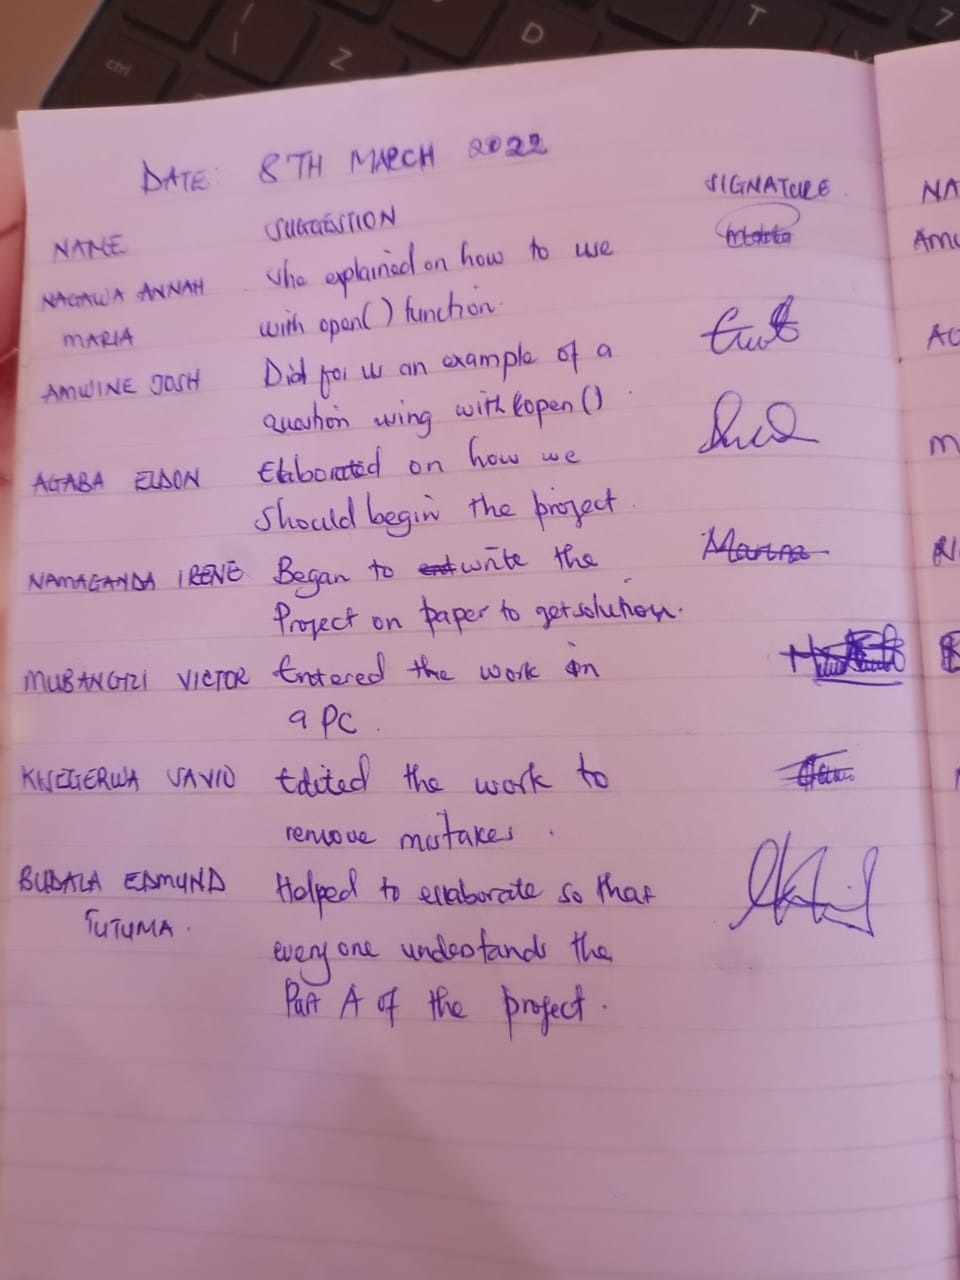 ctrl
Z
D
T
>
DATE: 8TH MARCH 2022
NAME SUGGESTION SIGNATURE
NAGAWA ANNAH She explained on how to use
MARIA with open() function.
AMWINE JOSH Did for us an example of a
question using with open()
AGABA ELDON Elaborated on how we
should begin the project.
NAMAGANDA IRENE Began to write the
Project on paper to get solution.
MUBANGIZI VICTOR Entered the work in
a PC.
KWIZERWA SAVIO Edited the work to
remove mistakes.
BUDALA EDMUND Helped to ellaborate so that
TUTUMA. everyone understands the
Part A of the project.
NA
AMW
AG
M